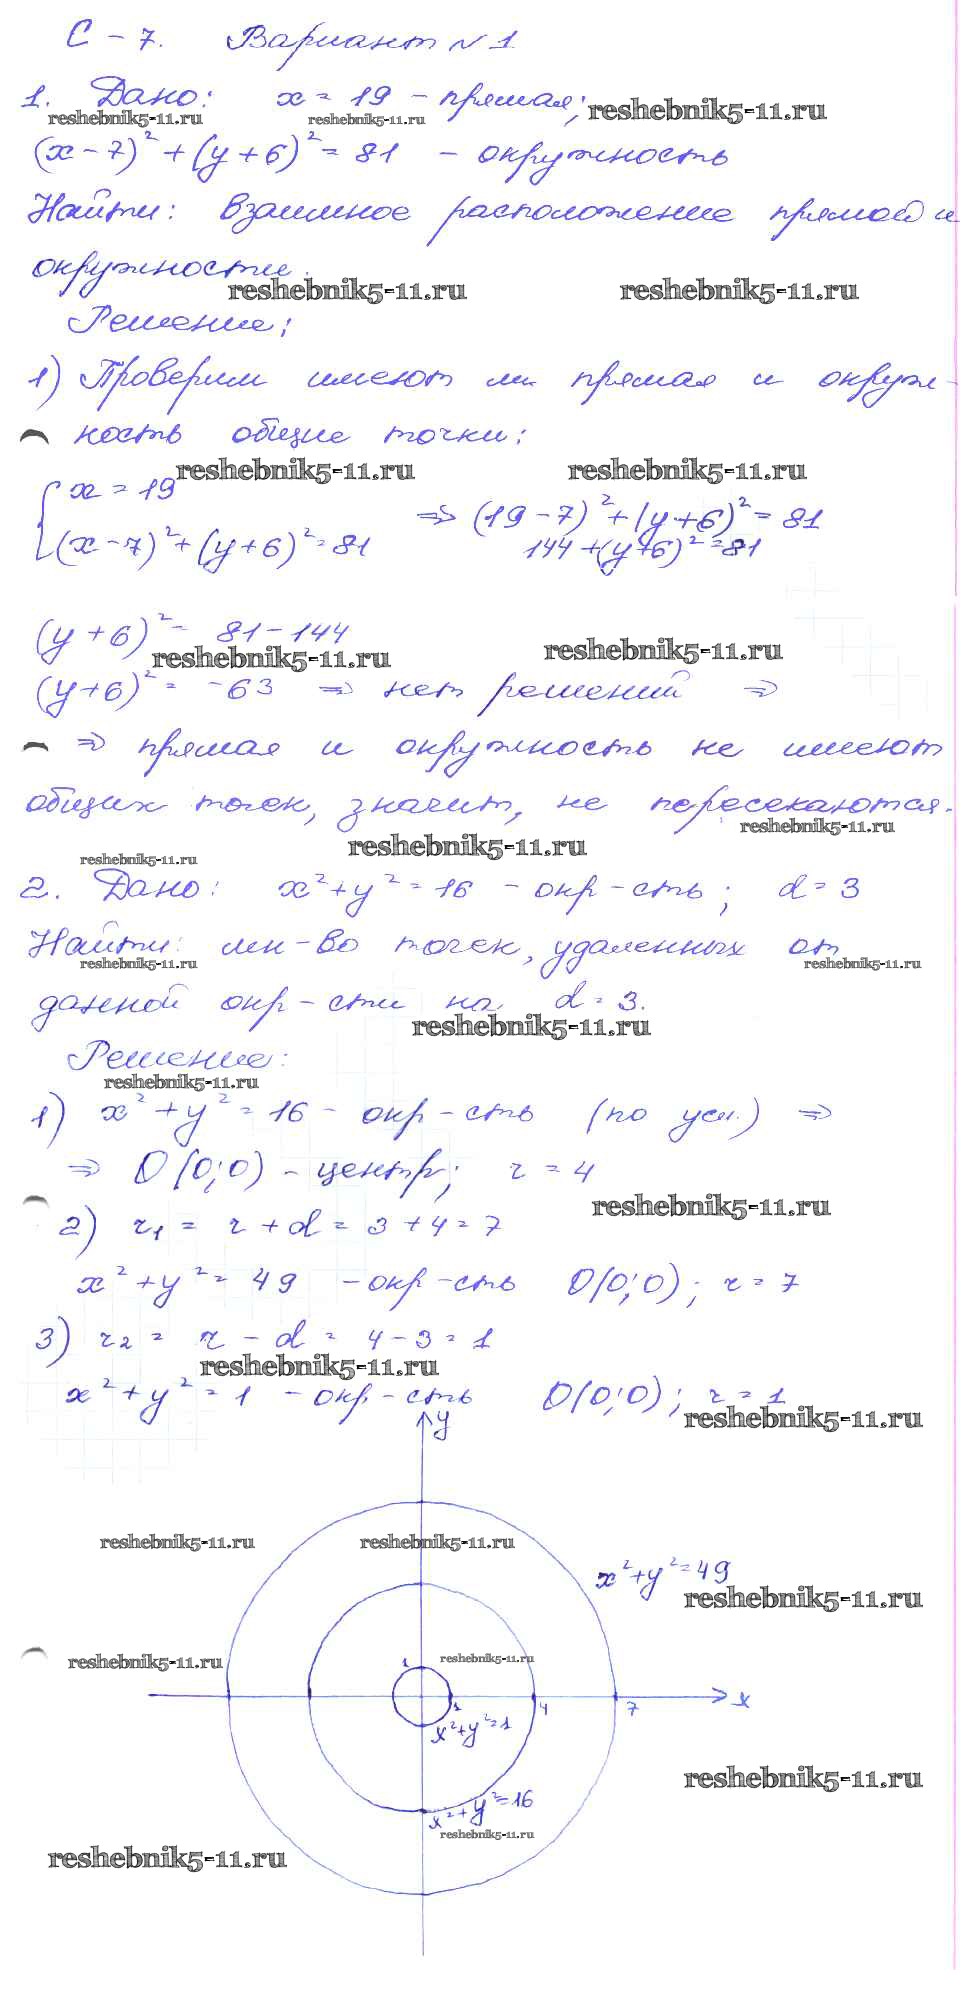 С - 7. Вариант №1
1. Дано: x = 19 - прямая;
reshebnik5-11.ru reshebnik5-11.ru reshebnik5-11.ru
(x - 7)² + (y + 6)² = 81 - окружность
Найти: Взаимное расположение прямой и
окружности.
reshebnik5-11.ru reshebnik5-11.ru
Решение:
1) Проверим имеют ли прямая и окруж-
ность общие точки:
reshebnik5-11.ru reshebnik5-11.ru
x = 19
(x - 7)² + (y + 6)² = 81 ⇒ (19 - 7)² + (y + 6)² = 81
144 + (y + 6)² = 81
(y + 6)² = 81 - 144
reshebnik5-11.ru reshebnik5-11.ru
(y + 6)² = -63 ⇒ нет решений ⇒
⇒ прямая и окружность не имеют
общих точек, значит, не пересекаются.
reshebnik5-11.ru
reshebnik5-11.ru reshebnik5-11.ru
2. Дано: x² + y² = 16 - окр-сть; d = 3
Найти: мн-во точек, удаленных от
reshebnik5-11.ru reshebnik5-11.ru
данной окр-сти на d = 3.
reshebnik5-11.ru
Решение:
reshebnik5-11.ru
1) x² + y² = 16 - окр-сть (по усл.) ⇒
⇒ O(0;0) - центр; r = 4
reshebnik5-11.ru
2) r₁ = r + d = 3 + 4 = 7
x² + y² = 49 - окр-сть O(0;0); r = 7
3) r₂ = r - d = 4 - 3 = 1
reshebnik5-11.ru
x² + y² = 1 - окр-сть O(0;0); r = 1
reshebnik5-11.ru
y
reshebnik5-11.ru reshebnik5-11.ru
x² + y² = 49
reshebnik5-11.ru
1
reshebnik5-11.ru reshebnik5-11.ru
1 4 7 x
x² + y² = 1
reshebnik5-11.ru
x² + y² = 16
reshebnik5-11.ru
reshebnik5-11.ru